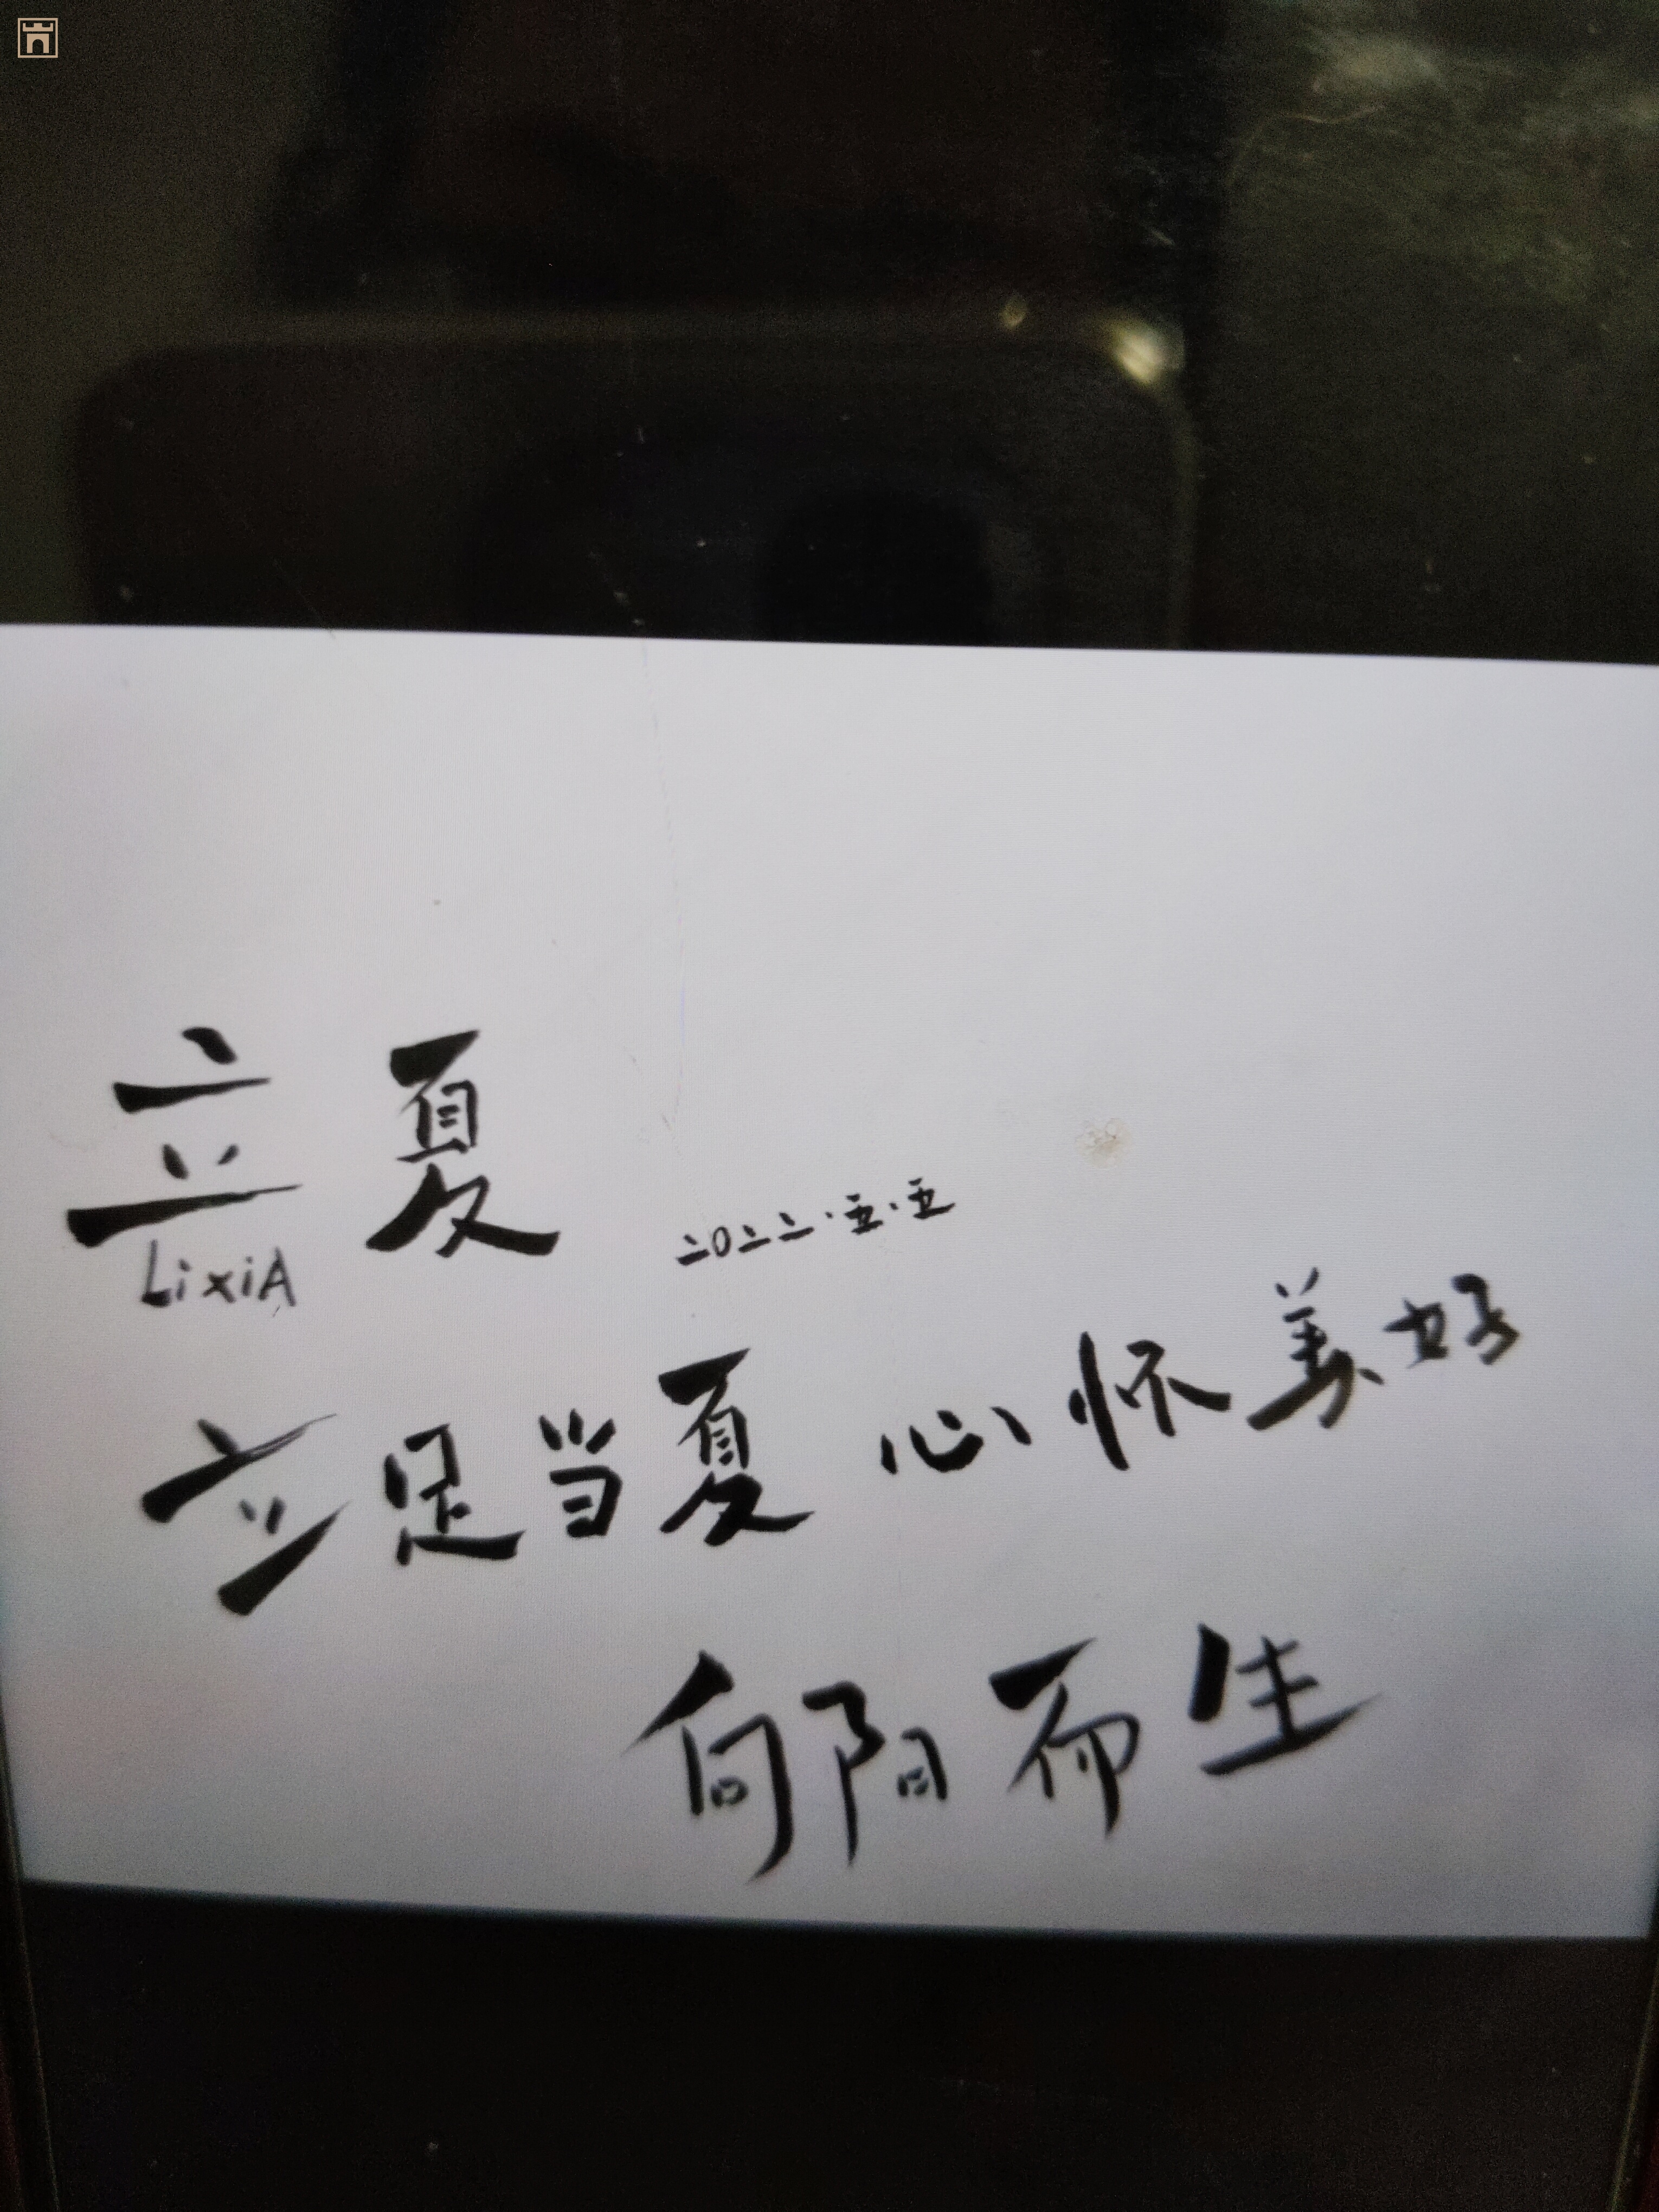 立夏
LixiA
二〇二二·五·五
立足当夏 心怀美好
向阳而生